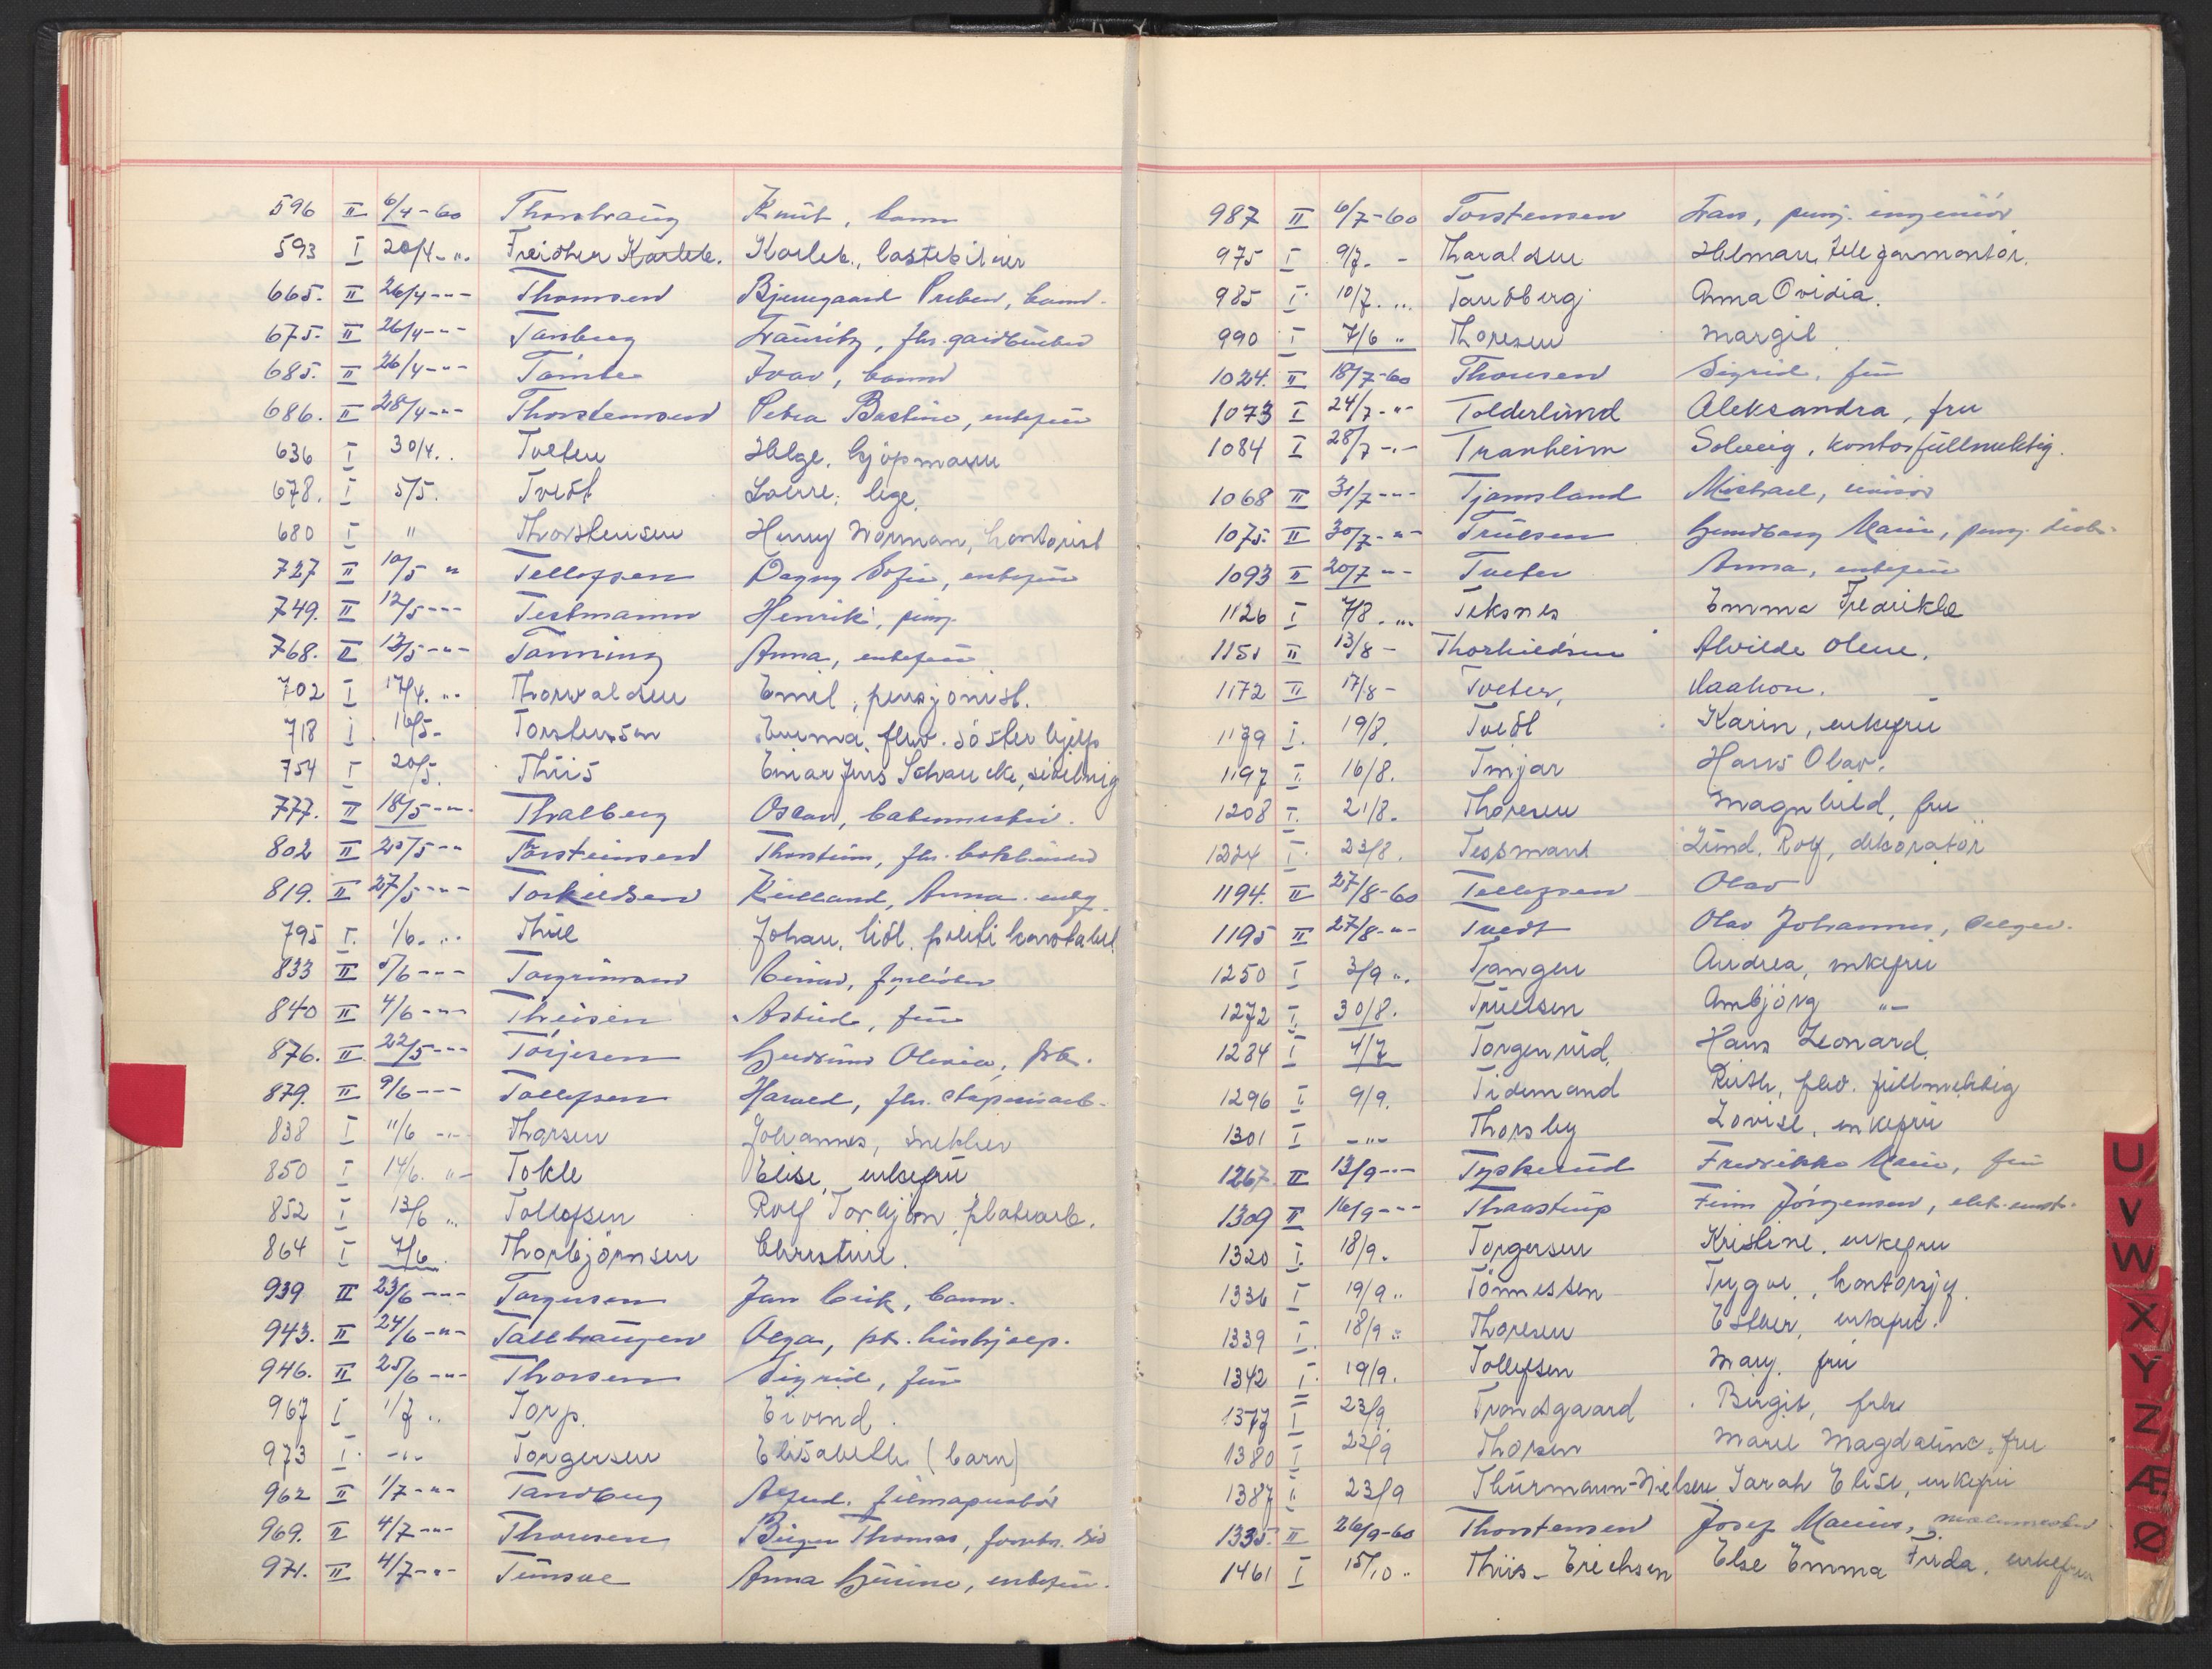 596 II 6/4-60 Thorshaug Knut, barn
593 I 20/4-".
665. II 26/4-"- Thomsen Bjerregaard Preben, barn.
675. II 26/4-"- Tansberg Lauritz, fhv. gårdbruker
685. II 26/4-"- Ivar, barn
686. II 28/4-"- Thorstensen Petra Bastine, enkefru
636 I 30/4. . Tveten Helge, kjøpmann
678. I 5/5. Tvedt Sverre, lege.
680 I " Thorstensen Henry Norman, kontorist
727 II 10/5 " Tellefsen Dagny Sofie, enkefru
749. II 12/5-"- Testmann Henrik, pens.
768. II 13/5-"- Tanning Anna, enkefru
702 I 17/4. ". Thorvaldsen Emil, pensjonist.
718 I 16/5- Torstensen Emma, fhv. søsterhjelp
754 I 20/5. Thiis Einar Jens Schancke, siviling
777. II 18/5-"-. Thalberg Oscar,
802 II 25/5-"- Torsteinsen Thorstein, fhv.
819. II 27/5-"- Torkildsen Kielland, Anna. enkf.
795 I. 1/6. ". Thue Johan, tidl. politikonstabel
833 II 5/6-"- Torgrimsen Einar,
840 II 4/6-"- Theisen Astrid, fru
876. II 22/5-"- Törjesen Gudrun Olivia, frk.
879. II 9/6-"- Tollefsen Harald, fhv.
838 I 11/6 -"- Thorsen Johannes, snekker
850 I 14/6. "- Tokle Elise, enkefru
852 I 13/6 ". Tollefsen Rolf Torbjørn, platearb.
864 I 7/6. Thorbjörnsen Christine.
939 II 23/6-"- Torgersen Jan Erik, barn.
943. II 24/6-"- Tallhaugen Olga, frk. hushjelp.
946. II 25/6-"- Thorsen Sigrid, fru
967 I 1/7 .. Torp. Eivind.
973 I. -"- Torgersen Elisabeth (barn)
962 II 1/7-"- Tandberg
969. II 4/7-"- Thoresen Birger Thomas,
971. II 4/7-"- Anna Gurine, enkefru.
987 II 6/7-60 Torstensen pens. ingeniör
975 I 9/7. - Tharaldsen Hilmar, telegrmontör.
985 I. 10/7. .. Tandberg Anna Ovidia.
990 I 7/6 " Thoresen Margit
1024. II 18/7-60 Thoresen Sigrid, fru
1073 I 24/7-"- Tolderlund Aleksandra, fru
1084 I 28/7-"- Tranheim Solveig, kontorfullmektig.
1068 II 31/7-"- Tjomsland Michael,
1075. II 30/7-"- Truesen Marie, pens.
1093 II 20/7-"- Tveter Anna, enkefru
1126 I 7/8. ". Teksnes Emma Fredrikke
1151 II 13/8- Thorkildsen Alvilde Olene.
1172 II 17/8- Tveter, Haakon.
1179 I. 19/8. Tvedt Karin, enkefru
1197 I. 16/8. Hans Olav.
1208 I. 21/8. Thoresen Magnhild, fru
1224 I. 23/8. Tessmann Lund, Rolf, dekoratör
1194. II 27/8-60 Tellefsen Olav
1195 II 27/8-"- Tvedt Olav Johannes,
1250 I 3/9 ". Tangen Andrea, enkefru
1272 I. 30/8. Truelsen Ambjörg "-
1284 I 4/7 Torgenrud. Hans Leonard.
1296 I 9/9. Tidemand Ruth, fhv. fullmektig
1301 I -"- Thorsby Lovise, enkefru
1267. II 13/9-"- Tyskerud Fredrikke Marie, fru
1309 II 16/9-"- Thaastrup Finn Jörgensen,
1320 I. 18/9. Torgersen Kristine, enkefru
1336 I 19/9 .. Tönnessen Trygve,
1339 I. 18/9 " Thoresen Esther, enkefru.
1342 I. 19/9. Tollefsen Mary, fru
1377 I 23/9 Trondsgaard Birgit, frk.
1380 I 22/9 Thorsen Marie Magdaline, fru
1387 I. 23/9 Thurmann-Nielsen Sarah Elise, enkefru
1335. II 26/9-60 Thorstensen Josef Marius,
1461 I 15/10 .. Thiis-Erichsen Else Emma Frida, enkefru
U
V
W
X
Y
Z
Æ
Ø